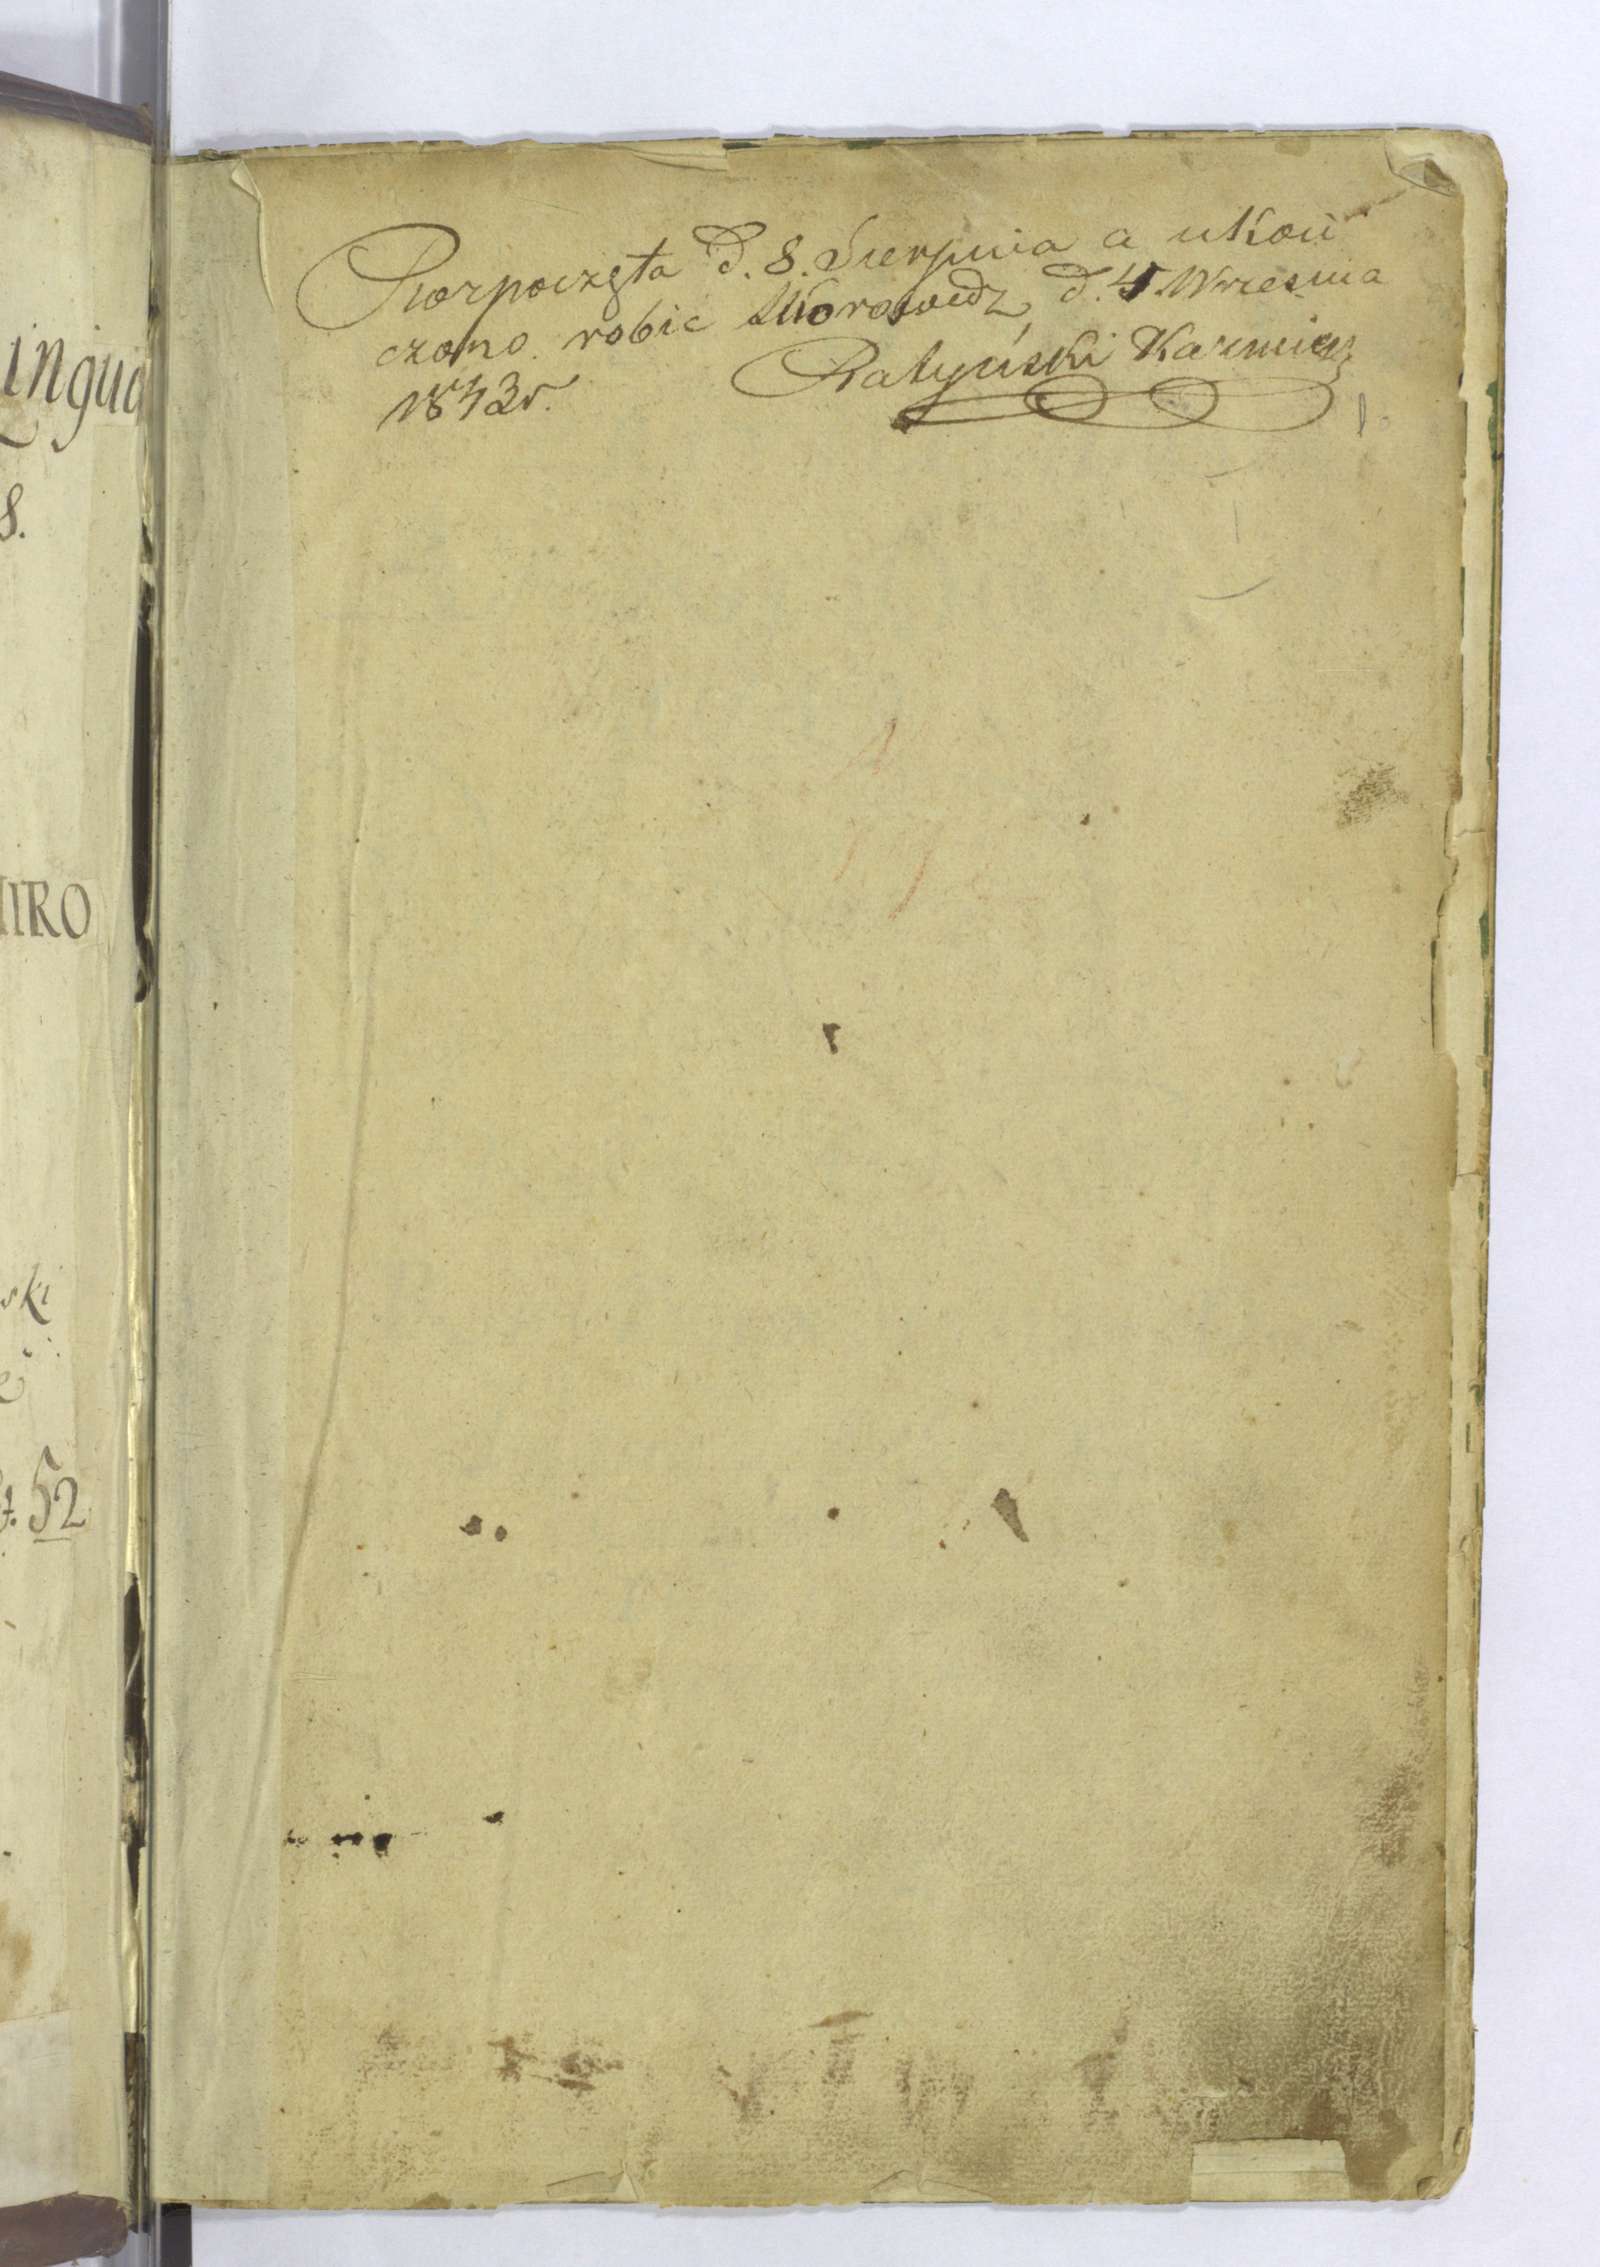 ingua
8.
IIRO
ski
52
Rozpoczęta d. 8. Sierpnia a ukoń
czono robić d. 4. Wrzesnia
1843 r. Ratyński Kazmierz